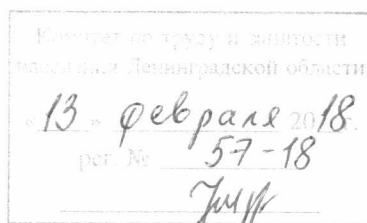 Комитет по труду и занятости
населения Ленинградской области
«13» февраля 2018 г.
рег. № 57-18